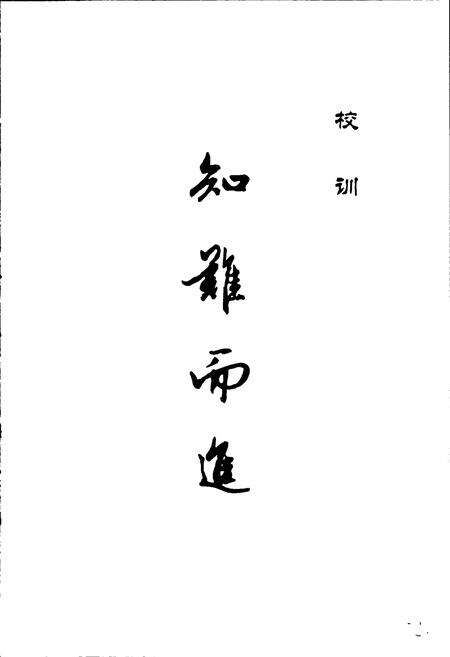 校训
知難而進